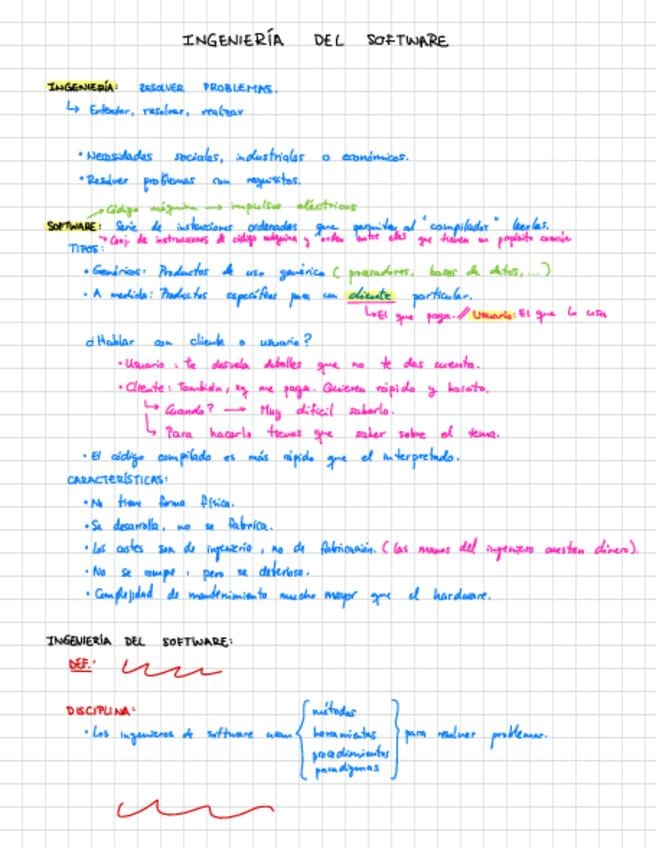 INGENIERÍA DEL SOFTWARE
INGENIERÍA: RESOLVER PROBLEMAS.
↳ Entender, resolver, realizar
• Necesidades sociales, industriales o económicas.
• Resolver problemas con requisitos.
→ Código máquina → impulsos eléctricos
SOFTWARE: Serie de instrucciones ordenadas que permiten al "compilador" leerlas.
↳ Conj. de instrucciones de código máquina y orden entre ellas que tienen un propósito común
TIPOS:
• Genéricos: Productos de uso genérico (procesadores, bases de datos,...)
• A medida: Productos específicos para un cliente particular.
↳ El que paga. // Usuario: El que lo usa
¿Hablar con cliente o usuario?
• Usuario: te desvela detalles que no te das cuenta.
• Cliente: También, xq me paga. Quieren rápido y barato.
↳ Cuando? → Muy difícil saberlo.
↳ Para hacerlo tienes que saber sobre el tema.
• El código compilado es más rápido que el interpretado.
CARACTERÍSTICAS:
• No tiene forma física.
• Se desarrolla, no se fabrica.
• Los costes son de ingeniería, no de fabricación. (las manos del ingeniero cuestan dinero).
• No se rompe, pero se deteriora.
• Complejidad de mantenimiento mucho mayor que el hardware.
INGENIERÍA DEL SOFTWARE:
DEF.:
DISCIPLINA:
• Los ingenieros de software usan { métodos
herramientas
procedimientos
paradigmas } para resolver problemas.